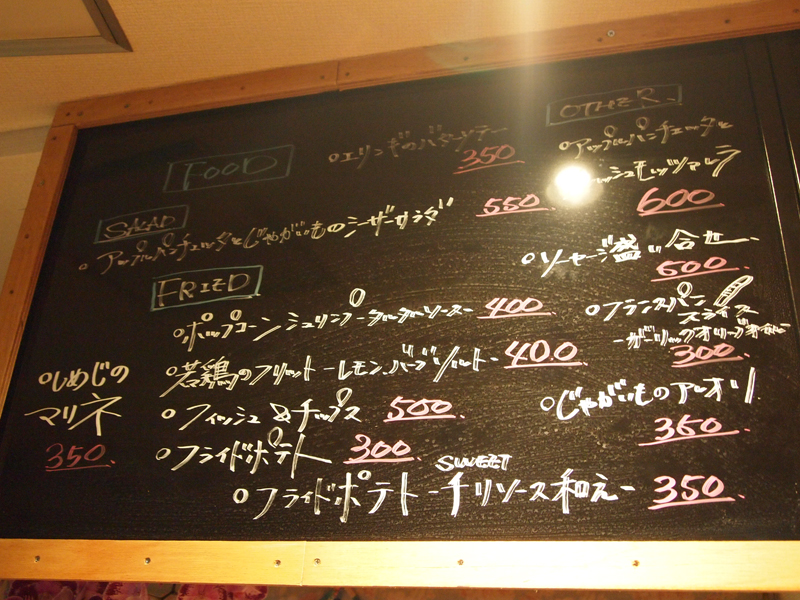 FOOD
○エリンギのバターソテー
350
OTHER
○アップルパンチェッタと
フレッシュモッツァレラ
600
SALAD
○アップルパンチェッタとじゃがいものシーザーサラダ
550
○ソーセージ盛り合せ
500
FRIED
○ポップコーンシュリンプ-タルタルソース- 400
○フランスパン
スライス
-ガーリックオリーブオイル-
300
○若鶏のフリット-レモンハーブソルト- 400
○しめじの
マリネ
350
○フィッシュ&チップス 500
○じゃがいものアンチョビ
350
○フライドポテト 300
○フライドポテト-SWEETチリソース和え- 350